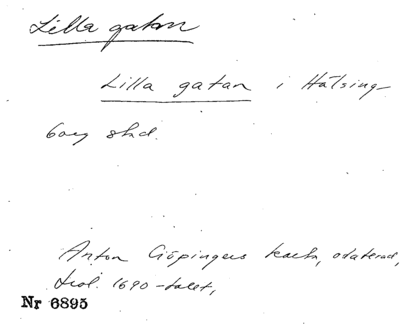 Lilla gatan
Lilla gatan i Hälsing-
borg stad.
Anton Göpingers karta, odaterad,
trol. 1690-talet,
Nr 6895